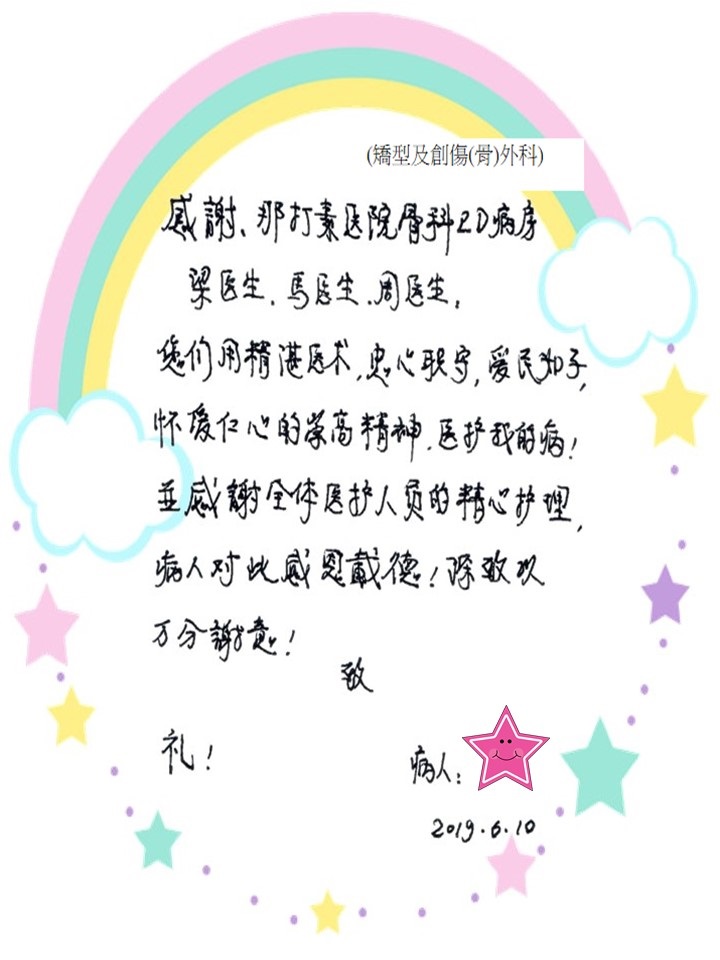 (矯型及創傷(骨)外科)
感謝、那打素医院骨科2D病房
梁医生、馬医生、周医生:
您们用精湛医术,忠心职守,爱民如子,
怀爱仁心的崇高精神,医护我的病!
並感謝全体医护人员的精心护理,
病人对此感恩戴德!深致以
万分謝意!
致
礼!
病人:
2019.6.10